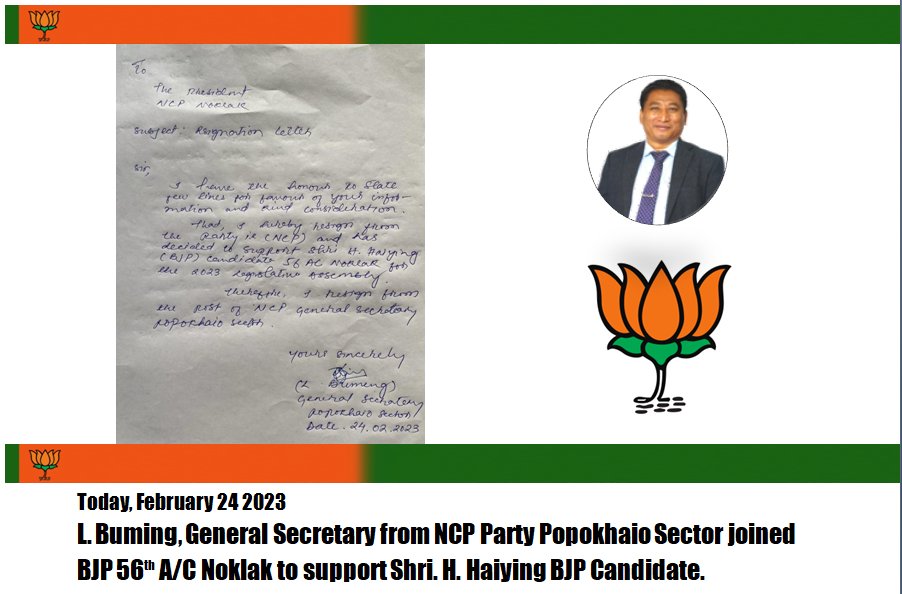 To
The President
NCP NOKLAK
Subject: Resignation Letter
Sir,
I have the honour to State
few lines for favour of your infor-
mation and kind consideration.
That I hereby resign from
the Party ie (NCP) and has
decided to Support Shri H. Haiying
(BJP) candidate 56 AC NOKLAK for
the 2023 legislative Assembly.
Therefore, I resign from
the post of NCP General Secretary
POPOKHAIO Sector.
Yours Sincerely
(L Bumeng)
General Secretary
POPOKHAIO Sector
Date. 24.02.2023
Today, February 24 2023
L. Buming, General Secretary from NCP Party Popokhaio Sector joined
BJP 56th A/C Noklak to support Shri. H. Haiying BJP Candidate.